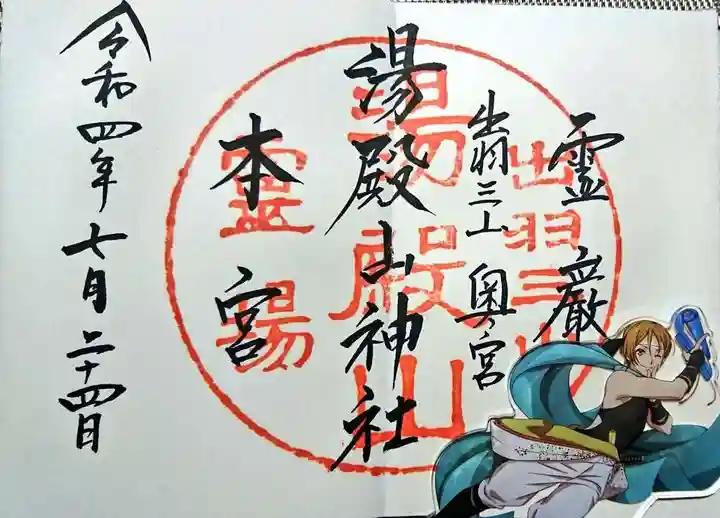 霊厳
出羽三山奥ノ宮
湯殿山神社
本宮
令和四年七月二十四日
出羽三山
湯殿山
霊場